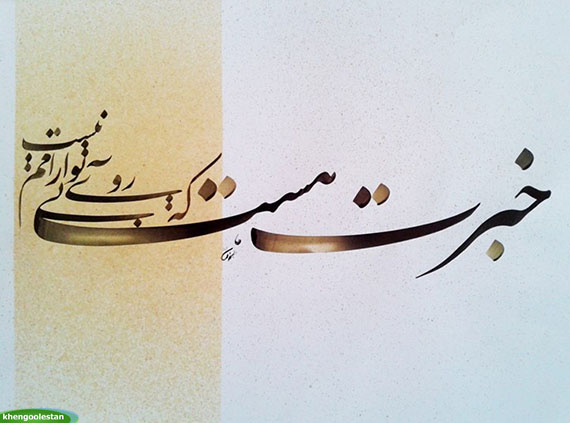 خبرت هست که بی روی تو آرامم نیست
khengoolestan